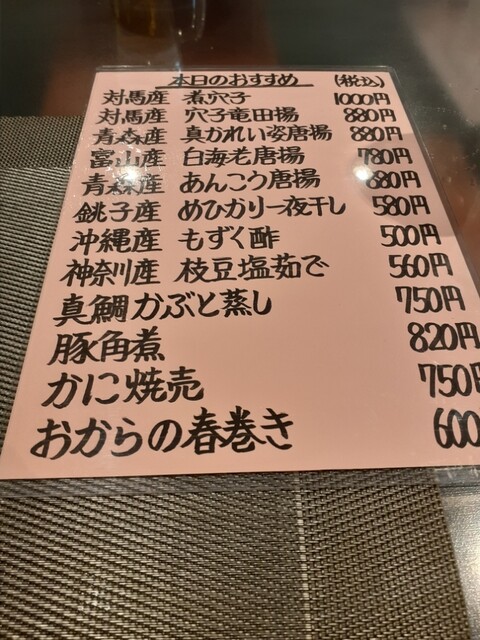 本日のおすすめ (税込)
対馬産 煮穴子 1000円
対馬産 穴子竜田揚 880円
青森産 真かれい姿唐揚 880円
富山産 白海老唐揚 780円
青森産 あんこう唐揚 880円
銚子産 めひかり一夜干し 580円
沖縄産 もずく酢 500円
神奈川産 枝豆塩茹で 560円
真鯛かぶと蒸し 750円
豚角煮 820円
かに焼売 750円
おからの春巻き 600